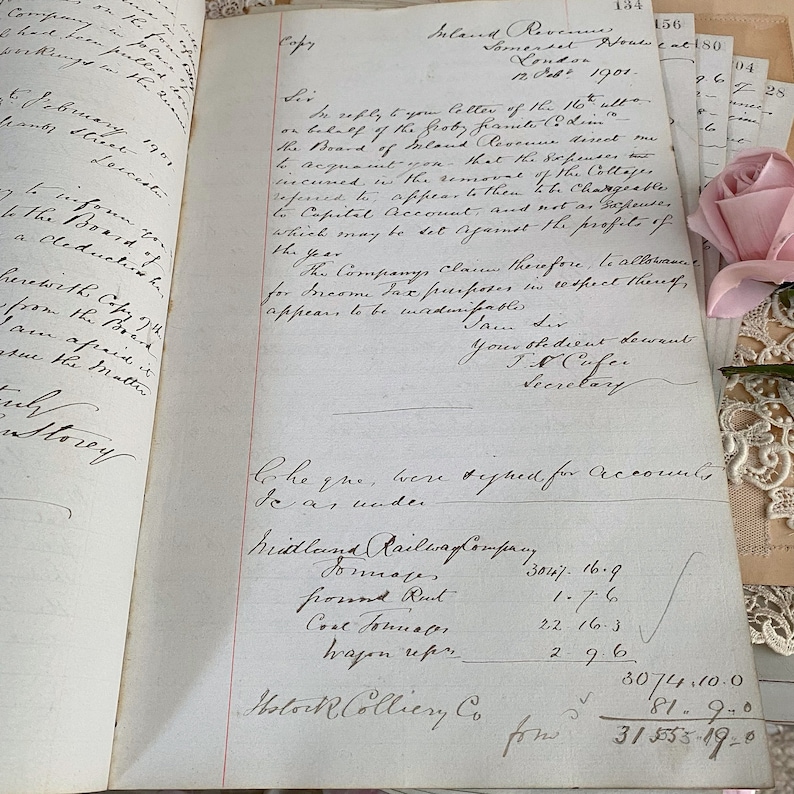 Company
had been pulled
workings in the
February 1901
Granby Street
Leicester
to inform you
to the Board of
a deduction
herewith Copy of the
from the Board
I am afraid it
the matter
Storey
134
Copy
Inland Revenue
Somerset House
London
12 Feb 1901.
Sir
In reply to your letter of the 16th ulto
on behalf of the Groby Granite Co Lim
the Board of Inland Revenue direct me
to acquaint you that the Expenses
incurred in the removal of the Cottages
referred to, appear to them to be Chargeable
to Capital Account, and not as Expenses
which may be set against the profits of
the year
The Companys claim therefore, to allowance
for Income Tax purposes in respect thereof
appears to be inadmissible
I am Sir
Your obedient Servant
Secretary
Cheques were signed for accounts
&c as under
Midland Railway Company
Tonnages 3047. 16. 9
Ground Rent 1. 7. 6
Coal Tonnages 22 16. 3
Wagon reprs 2. 9. 6
3074. 10. 0
Ibstock Colliery Co 81. 9. 0
forwd 19 0
156
180
9.6
8
6
04
28